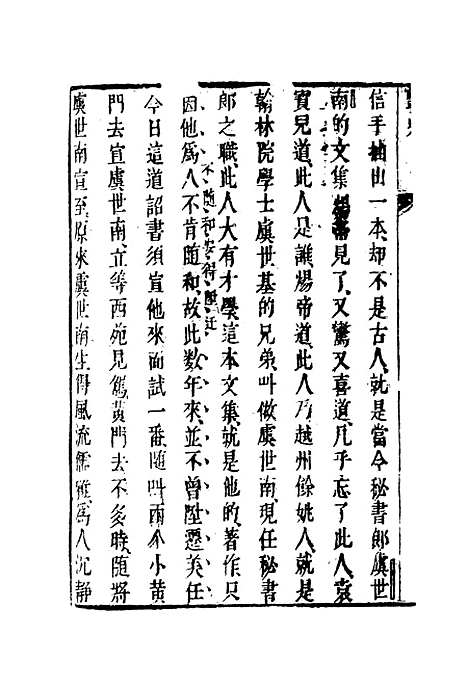 信手抽出一本、却不是古人、就是當今秘書郎虞世
南的文集、煬帝見了、又驚又喜道、几乎忘了此人、袁
寶兒道、此人是誰、煬帝道、此人乃越州餘姚人、就是
翰林院學士虞世基的兄弟、叫做虞世南、現任秘書
郎之職、此人大有才學、這本文集、就是他的著作、只
不隨和安得陞迁
因他爲人不肯隨和、故此数年來、並不曾陞遷美任
今日這道詔書須宣他來面試一番、隨叫兩个小黄
門去宣虞世南、立等西苑見駕、黄門去不多時、隨將
虞世南宣至、原來虞世南生得風流儒雅、爲人沉静